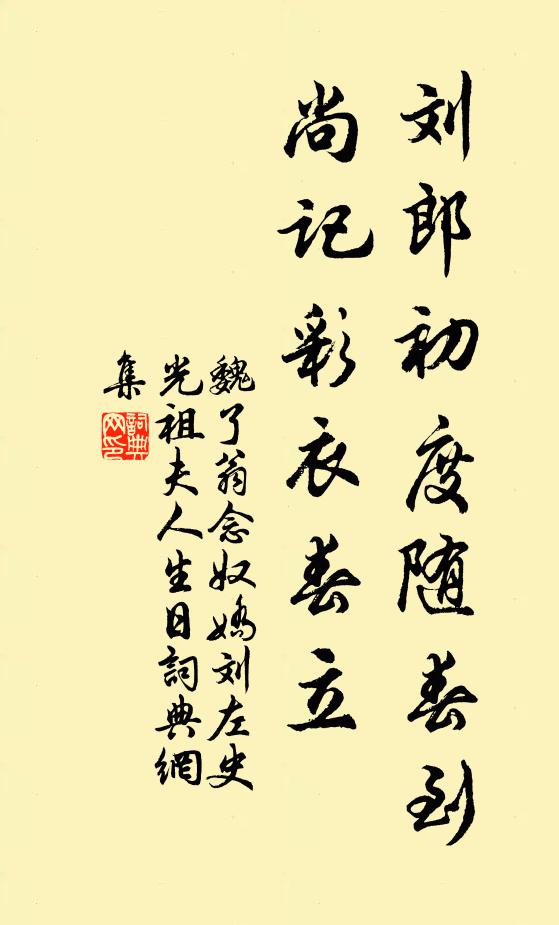 刘郎初度随春到
尚记彩衣春立
魏了翁念奴娇刘左史
光祖夫人生日詞典網
集
詞典
网印